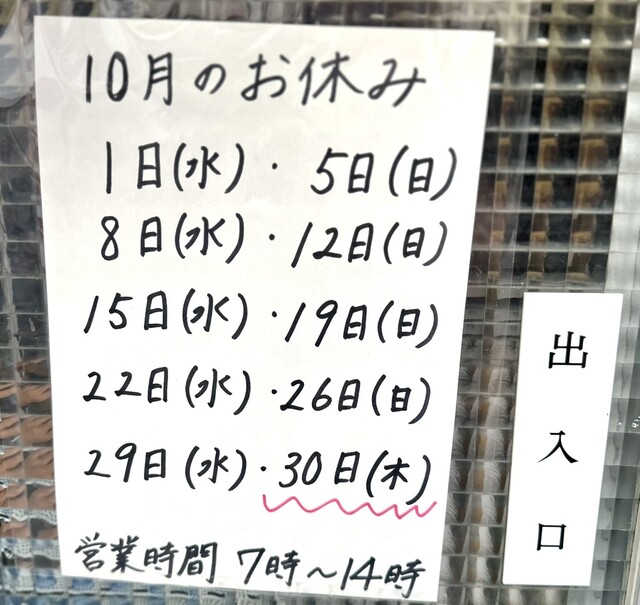 10月のお休み
1日(水)・5日(日)
8日(水)・12日(日)
15日(水)・19日(日)
22日(水)・26日(日)
29日(水)・30日(木)
営業時間 7時～14時
出入口